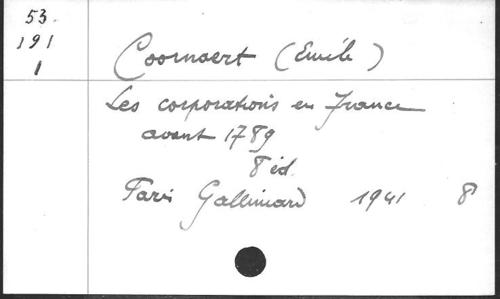 53
191
1
Coornaert (Emile)
Les corporations en France
avant 1789
8 éd.
Paris Gallimard 1941 8